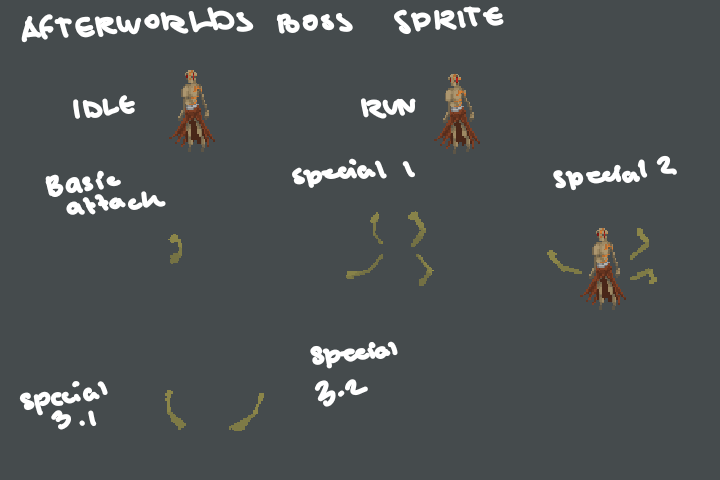 AFTERWORLDS BOSS SPRITE
IDLE
RUN
Basic
attack
Special 1
Special 2
Special
3.1
Special
3.2